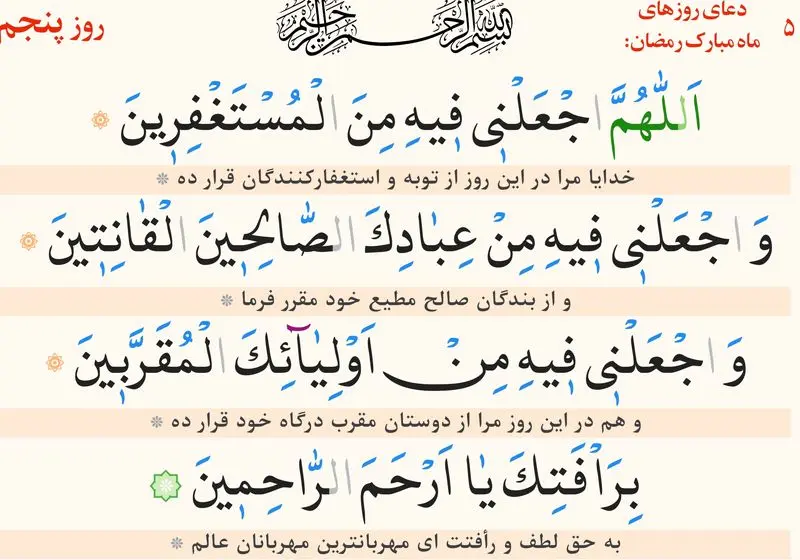 ۵
دعای روزهای
ماه مبارک رمضان:
بسم الله الرحمن الرحیم
روز پنجم
اَللّٰهُمَّ اجْعَلْنٖی فٖیهِ مِنَ الْمُسْتَغْفِرٖینَ
خدایا مرا در این روز از توبه و استغفارکنندگان قرار ده
وَ اجْعَلْنٖی فٖیهِ مِنْ عِبٰادِكَ الصّٰالِحٖینَ الْقٰانِتٖینَ
و از بندگان صالح مطیع خود مقرر فرما
وَ اجْعَلْنٖی فٖیهِ مِنْ اَوْلِیٰآئِكَ الْمُقَرَّبٖینَ
و هم در این روز مرا از دوستان مقرب درگاه خود قرار ده
بِرَاْفَتِكَ یٰا اَرْحَمَ الرّٰاحِمٖینَ
به حق لطف و رأفتت ای مهربانترین مهربانان عالم